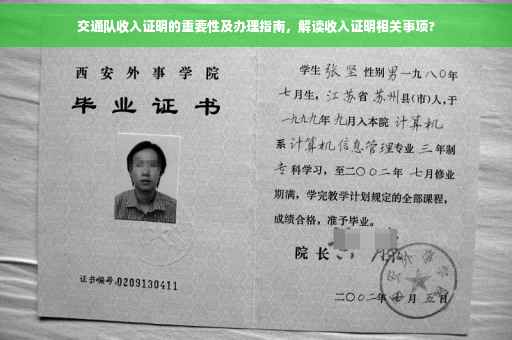 交通队收入证明的重要性及办理指南，解读收入证明相关事项？
西安外事学院
毕业证书
证书编号:0209130411
学生 张坚 性别 男 一九八〇年
七月生，江苏省 苏州县(市)人,于
一九九九年 九月入本院 计算机
系 计算机信息管理专业 三 年制
专 科学习，至二〇〇二年 七月修业
期满，学完教学计划规定的全部课程，
成绩合格，准予毕业。
院长
二〇〇二年 七 月 五 日